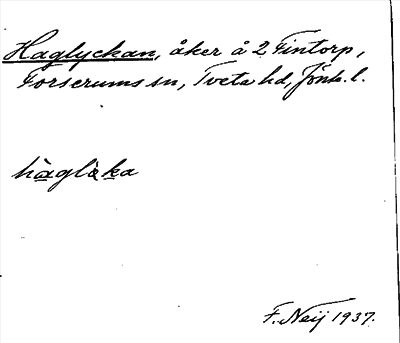 Haglyckan, åker å 2 Fintorp,
Forserums sn, Tveta hd, Jönk. l.
hàglàka
F. Neij 1937.